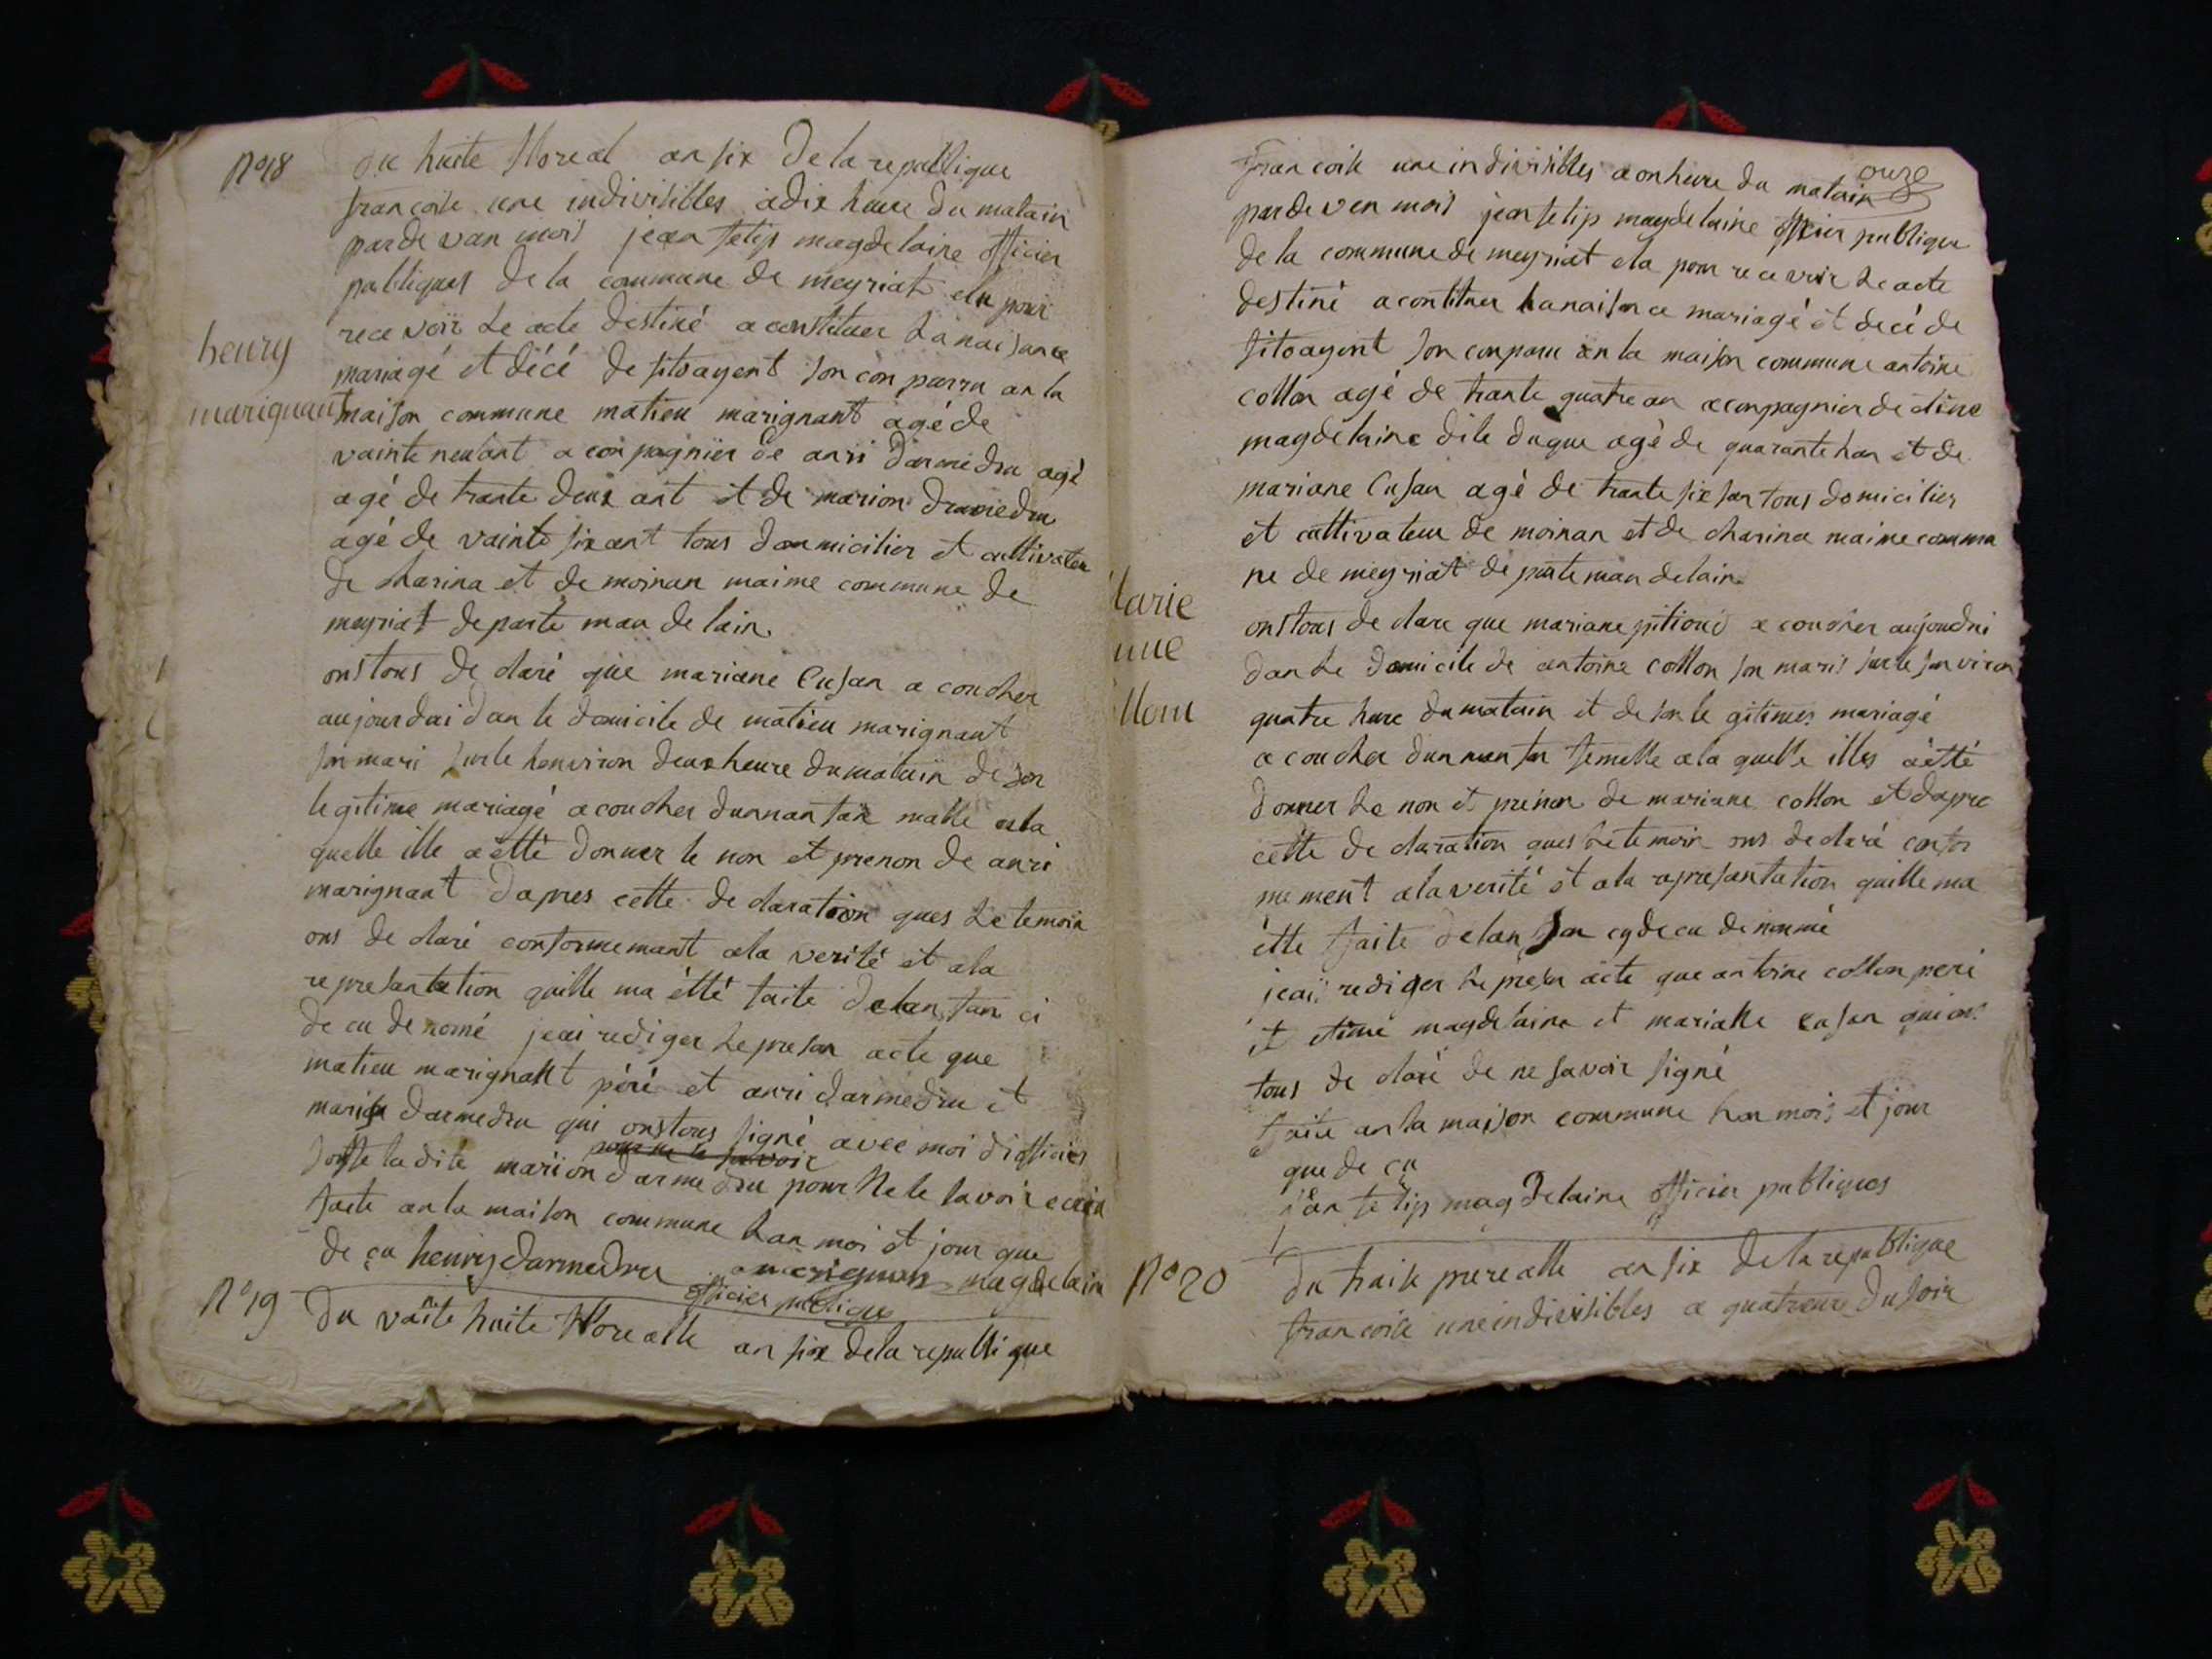 N°18
du huite floreal an six De la republique
francoise une indivisibles a dix heure Du matain
par de van mois jean felip magdelaine officier
publiques De la commune de meyriat elu pour
rece voir Le acte destiné a constituer La naisance
henry
mariagé et décé de sitoayent son con parru an la
mariguant
maison commune matieu marignant agé de
vainte neufant a conpagnier de anri darmedru agé
agé de trante deux ant et de marion darmedru
agé de vainte sixant tous domicilier et cultivateu
de charina et de moinan maime commune de
meyriat departe man de lain
ons tous De claré que mariane Cusan a coucher
aujourdui dan le domicile de matieu marignant
son mari surle henviron deux heure du matain de son
legitime mariagé a coucher dunnan fan malle a la
quelle ille a étté donner le non et prenon de anri
marignant dapres cette declaration ques Le temoin
ons de claré conformemant a la verité et a la
represantation quille ma étté faite delan fan ci
de cu denomé jeai rediger Le presan acte que
matieu marignant péré et anri darmedru et
marion darmedru qui ons tous signé avec moi di officier
pour ne le savoir
souffe la dite marion darmedru pour Ne le savoir ecrir
faite an la maison commune Lan moi et jour que
de çu henry darmedru marignan magdelain
officier publique
N°19
Du vainte huite floréalle an six de la republique
francoise une indivisibles a onheure du matain
onze
par de ven mois jean felip magdelaine officier publique
de la commune de meyriat elu pour recevoir Le acte
destiné a contituer La naisance mariagé et decé de
sitoayent son conparu an la maison commune antoine
collon agé de trante quatre an aconpagnier de etine
magdelaine dite duque agé de quarante han et de
mariane Cusan agé de trante six san tous domicilier
et cultivateur de moinan et de charina maime commu
ne de meyriat de parteman de lain
larie
ons tous declare que mariane pitiond a coucher aujourdui
nne
dan Le domicile de antoine collon son maris sur le sanviron
llom
quatre hure du matain et de son le gitimes mariagé
a coucher dun nan fan femelle a la quelle illes a étté
donner Le non et prénon de mariane collon et dapre
cette declaration ques Le temoin ons declaré confor
mement a la verité et ala represantation quille ma
étté faite delan fan cy de cu denonmé
jeai rediger Le presan acte que antoine collon peré
et etiné magdelaine et marialle cusan qui ons
tous de claré de ne savoir signé
faite an la maison commune Lan mois et jour
que de çu
jean felip magdelaine officier publiques
N°20
Du traise prerealle an six de la republique
francoise une indivisibles a quatreur du soir